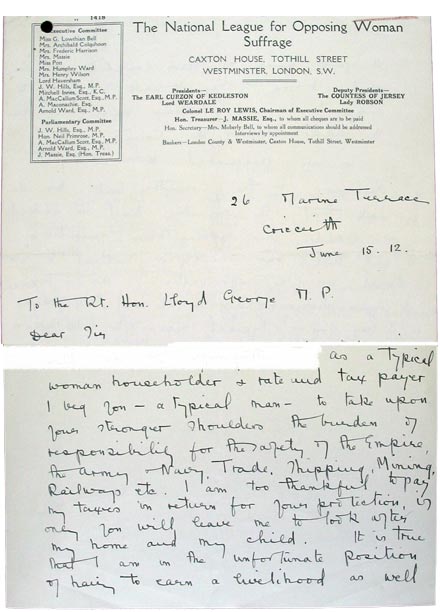 1418
The National League for Opposing Woman
Suffrage
CAXTON HOUSE, TOTHILL STREET
WESTMINSTER, LONDON, S.W.
Executive Committee
Miss G. Lowthian Bell
Mrs. Archibald Colquhoun
Mrs. Frederic Harrison
Mrs. Massie
Miss Pott
Mrs. Humphry Ward
Mrs. Henry Wilson
Lord Haversham
J. W. Hills, Esq., M.P.
Mitchell Innes, Esq., K.C.
A. MacCallum Scott, Esq., M.P.
A. Maconachie, Esq.
Arnold Ward, Esq., M.P.
Parliamentary Committee
J. W. Hills, Esq., M.P.
Hon. Neil Primrose, M.P.
A. MacCallum Scott, Esq., M.P.
Arnold Ward, Esq., M.P.
J. Massie, Esq. (Hon. Treas.)
Presidents—
The EARL CURZON OF KEDLESTON
Lord WEARDALE
Deputy Presidents—
The COUNTESS OF JERSEY
Lady ROBSON
Colonel LE ROY LEWIS, Chairman of Executive Committee
Hon. Treasurer—J. MASSIE, Esq., to whom all cheques are to be paid
Hon. Secretary—Mrs. Moberly Bell, to whom all communications should be addressed
Interviews by appointment
Bankers—London County & Westminster, Caxton House, Tothill Street, Westminster
26 Marine Terrace
Criccieth
June 15. 12.
To the Rt. Hon. Lloyd George M. P.
Dear Sir
as a typical
woman householder & rate and tax payer
I beg you — a typical man — to take upon
your stronger shoulders the burden of
responsibility for the safety of the Empire,
the Army, Navy, Trade, Shipping, Mining,
Railways etc. I am too thankful to pay
my taxes in return for your protection, if
only you will leave me to look after
my home and my child. It is true
that I am in the unfortunate position
of having to earn a livelihood as well